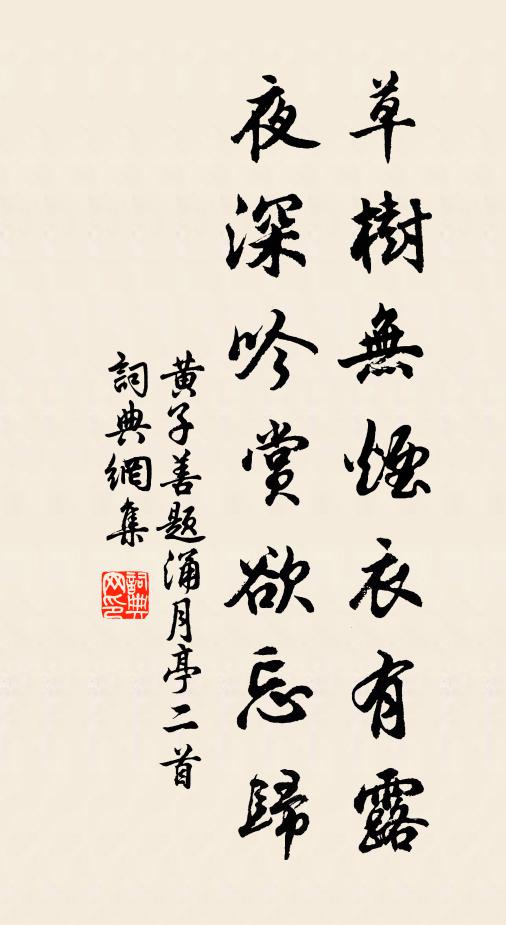 草樹無煙衣有露
夜深吟賞欲忘歸
黄子善題涌月亭二首
詞典網集
詞典网印